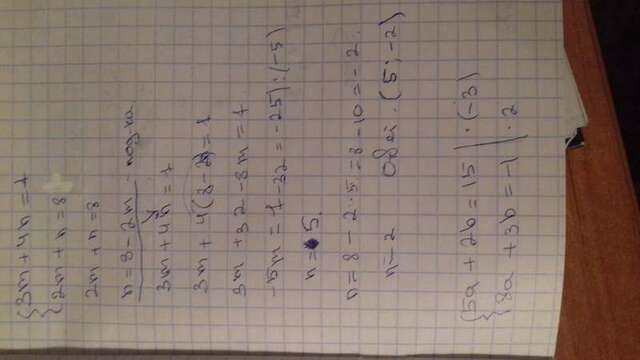 {3m + 4n = 1
{2m + n = 8
2m + n = 8
n = 8 - 2m - под-ка
3m + 4n = 1
3m + 4(8-2m) = 1
3m + 32 - 8m = 1
-5m = 1 - 32 = -25 | : (-5)
n = 5.
n = 8 - 2·5 = 8 - 10 = -2.
n = -2 Ответ. (5; -2)
{5a + 2b = 15 | ·(-3)
{8a + 3b = -1 | ·2